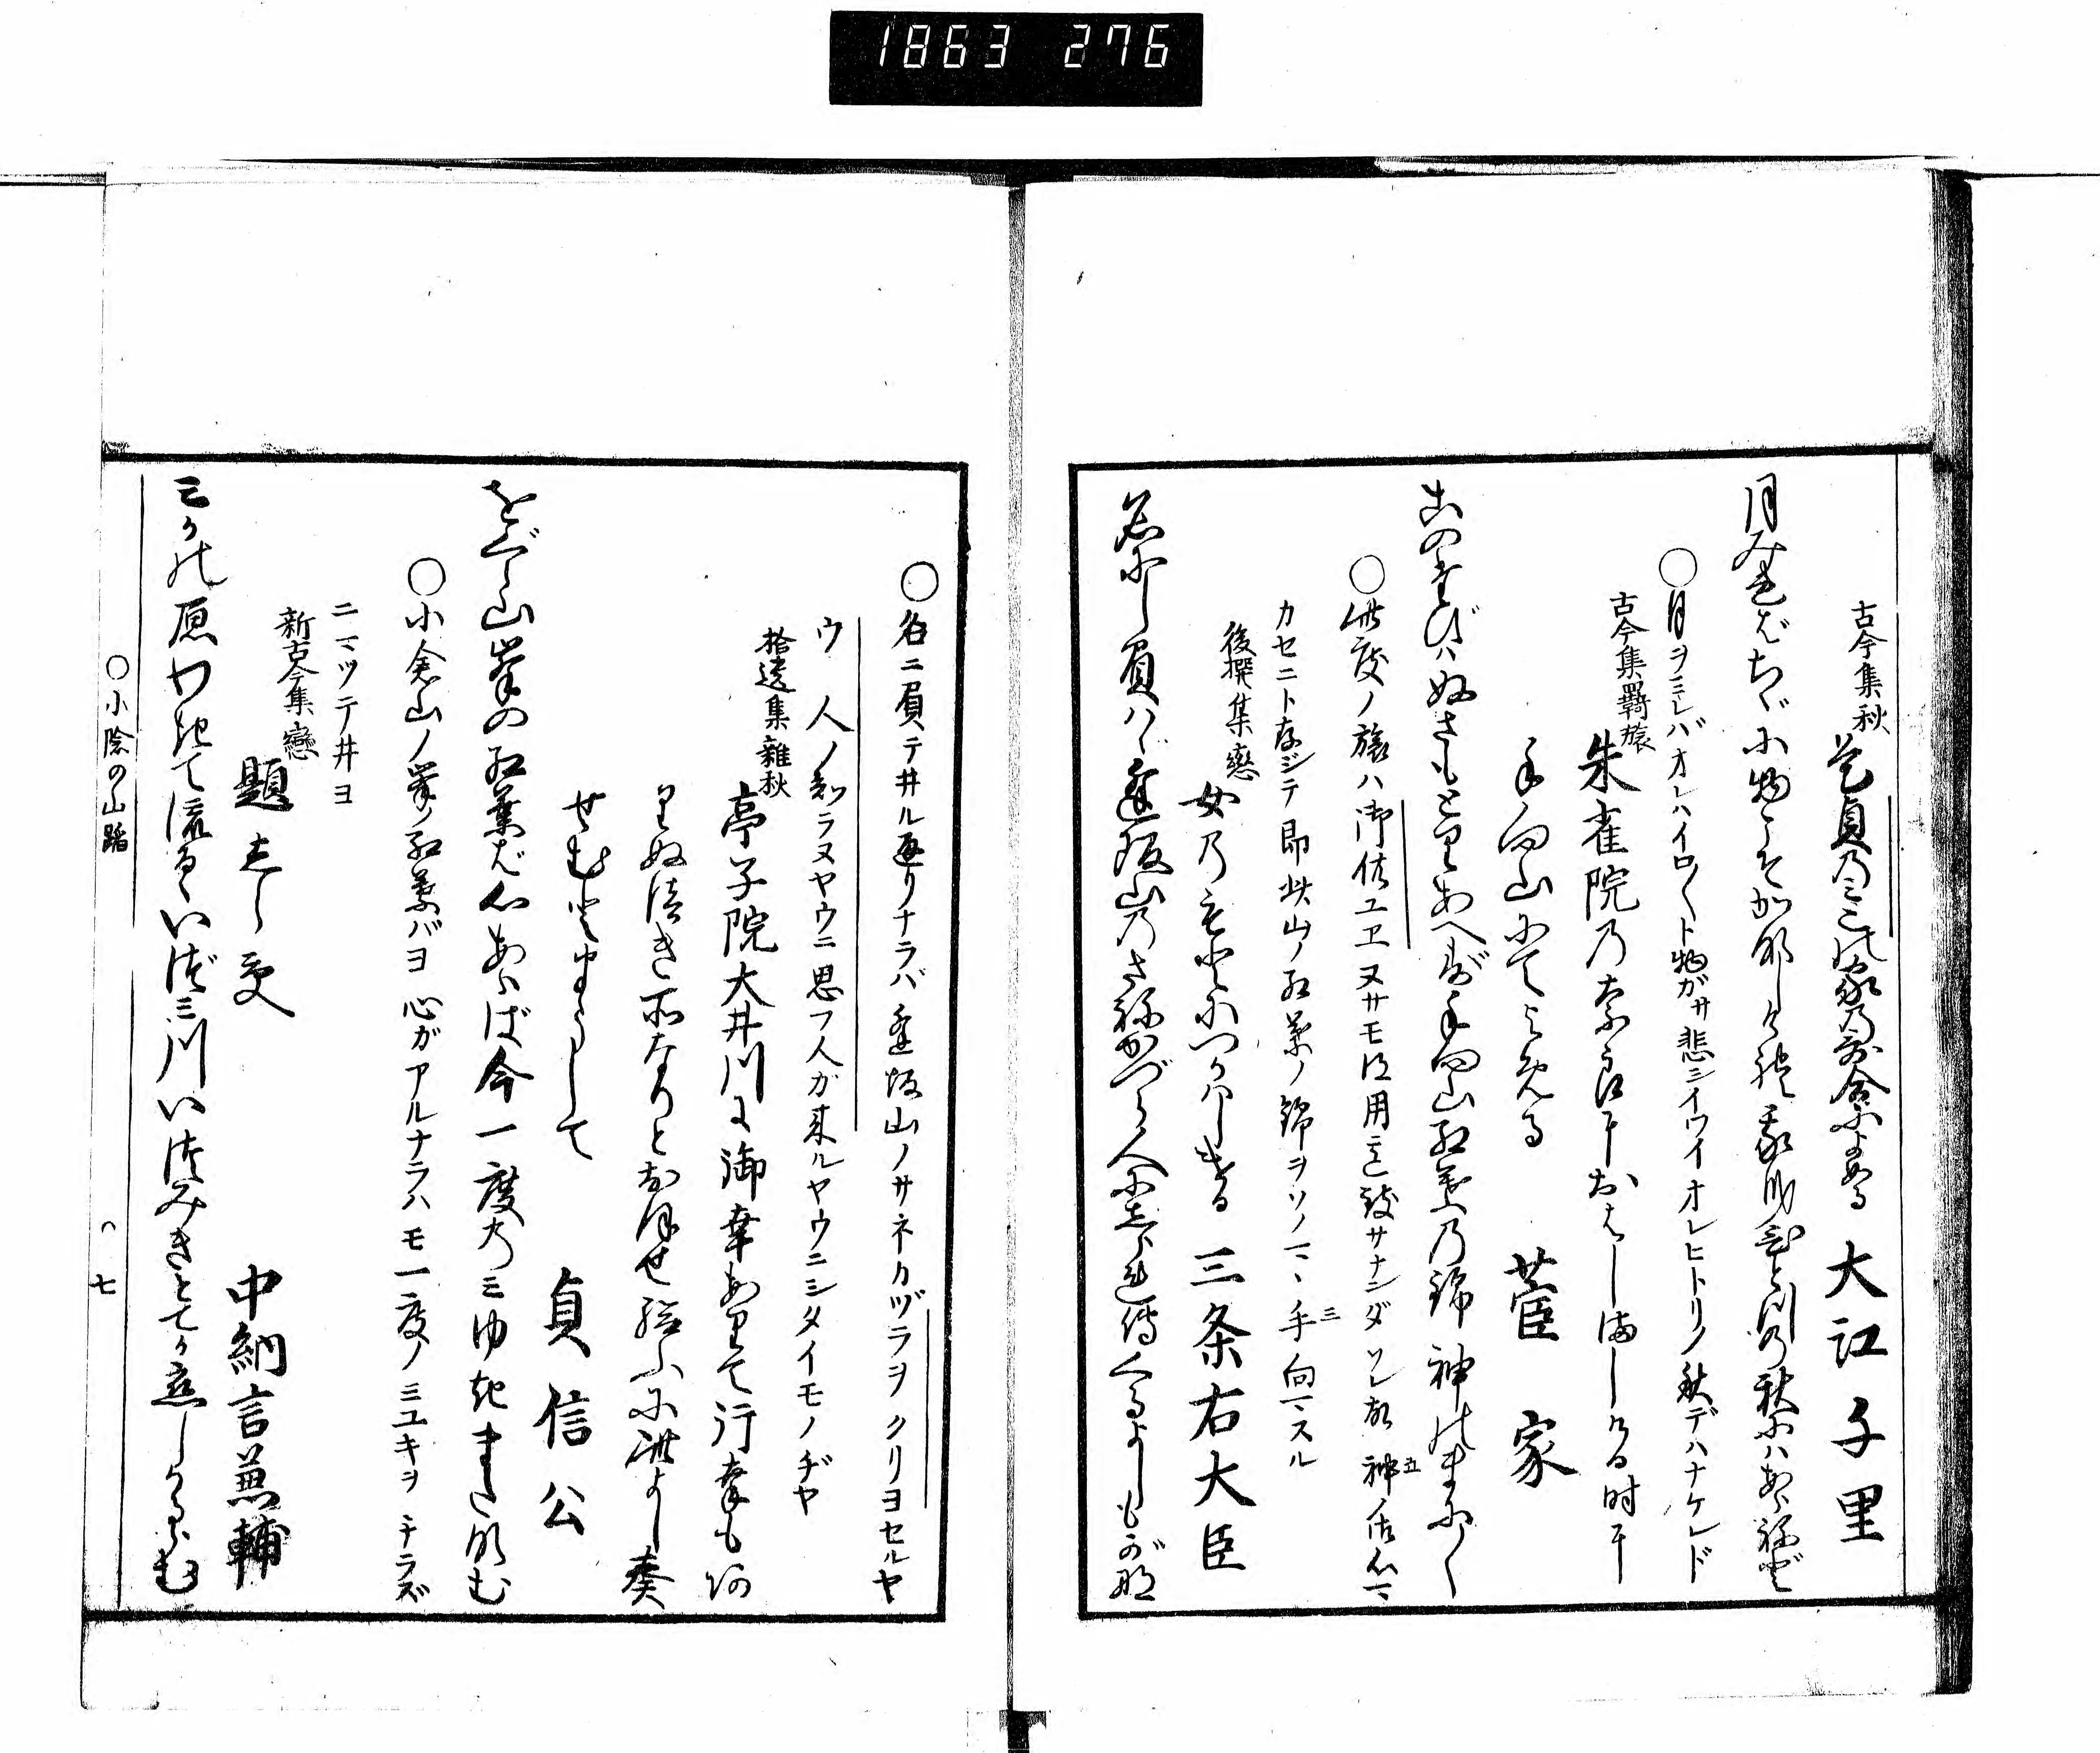 1863 276
古今集秋
是貞乃みこの家乃哥合によめる 大江千里
月みれバちゞに物こそかなしけれ我身ひとつの秋にハあらねど
○月ヲミレバオレハイロ〱ト物ガサ悲シイワイオレヒトリノ秋デハナケレド
古今集羇旅
朱雀院乃奈良におはしましける時に
手向山にてよめる 菅家
このたびハぬさもとりあへず手向山紅葉乃錦神のまに〱
○此度ノ旅ハ御供ユヱヌサモ得用意致サナンダソレ故 神五 御心マ
カセニト存ジテ即此山ノ紅葉ノ錦ヲソノマヽ 手三向マスル
後撰集恋
女乃もとにつかハしける 三条右大臣
名にし負ハヾ逢坂山乃さねかづら人にしられでくるよしもがな
○名ニ負テ井ル通リナラバ逢坂山ノサネカヅラヲクリヨセルヤ
ウ 人ノ知ラヌヤウニ思フ人ガ来ルヤウニシタイモノヂヤ
拾遺集雑秋
亭子院大井川に御幸ありて行幸もあ
りぬべき所なりとおほせ給ふに此よし奏
せむとまうして 貞信公
をぐら山峯の紅葉バ心あらば今一度のみゆきまたなむ
○小倉山ノ峯ノ紅葉バヨ心ガアルナラハモ一度ノミユキヲチラズ
ニマツテ井ヨ
新古今集戀
題しらず 中納言兼輔
みかの原わきて流るゝいづみ川いつみきとてか恋しかるらむ
○小陰の山踏 七